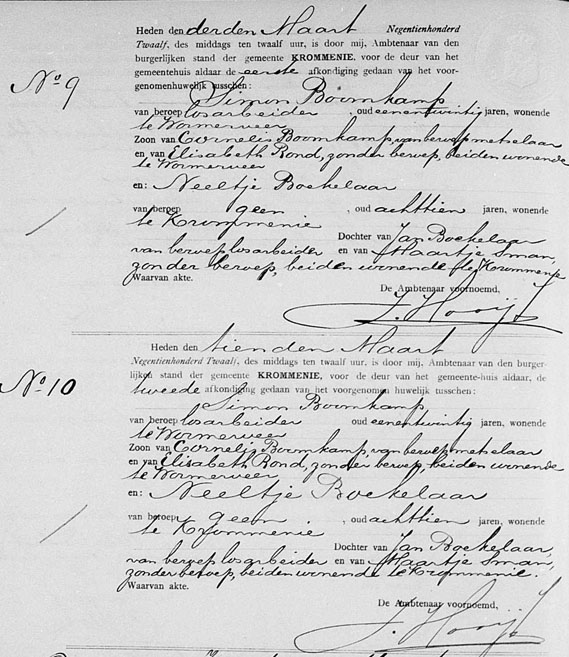 Heden den derden Maart Negentienhonderd
Twaalf, des middags ten twaalf uur, is door mij, Ambtenaar van den
burgerlijken stand der gemeente KROMMENIE, voor de deur van het
gemeentehuis aldaar de eerste afkondiging gedaan van het voor-
genomenhuwelijk tusschen:
No 9
Simon Boomkamp
van beroep losarbeider, oud eenentwintig jaren, wonende
te Wormerveer
Zoon van Cornelis Boomkamp, van beroep metselaar
en van Elisabeth Rond, zonder beroep, beiden wonende
te Wormerveer
en: Neeltje Boekelaar
van beroep geen, oud achttien jaren, wonende
te Krommenie
Dochter van Jan Boekelaar
van beroep losarbeider en van Maartje Sman,
zonder beroep, beiden wonende te Krommenie
Waarvan akte.
De Ambtenaar voornoemd,
Heden den tienden Maart
Negentienhonderd Twaalf, des middags ten twaalf uur, is door mij, Ambtenaar van den burger-
lijken stand der gemeente KROMMENIE, voor de deur van het gemeente-huis aldaar, de
tweede afkondiging gedaan van het voorgenomen huwelijk tusschen:
No 10
Simon Boomkamp
van beroep losarbeider oud eenentwintig jaren, wonende
te Wormerveer
Zoon van Cornelis Boomkamp, van beroep metselaar
en van Elisabeth Rond, zonder beroep, beiden wonende
te Wormerveer
en: Neeltje Boekelaar
van beroep geen, oud achttien jaren, wonende
te Krommenie
Dochter van Jan Boekelaar,
van beroep losarbeider en van Maartje Sman,
zonder beroep, beiden wonende te Krommenie.
Waarvan akte.
De Ambtenaar voornoemd,